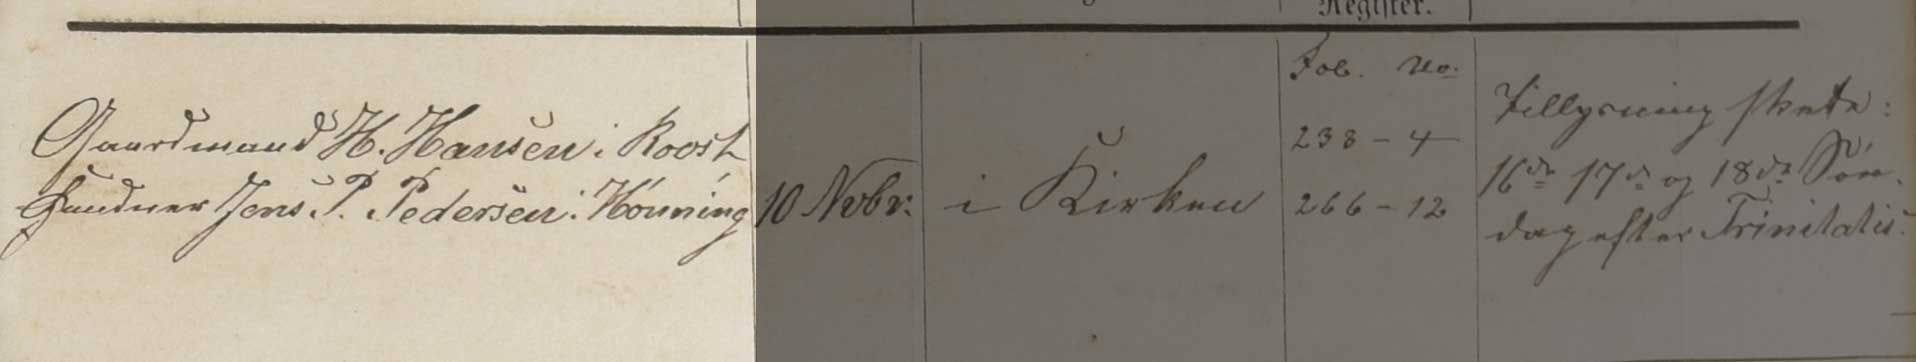 Register.
Gaardmand H. Hansen i Roost
Jens P. Pedersen i Hønning
10 Novbr:
i Kirken
Fol. No.
233 - 4
266 - 12
Tillysning skete:
16de 17de og 18de Søn-
dag efter Trinitatis.